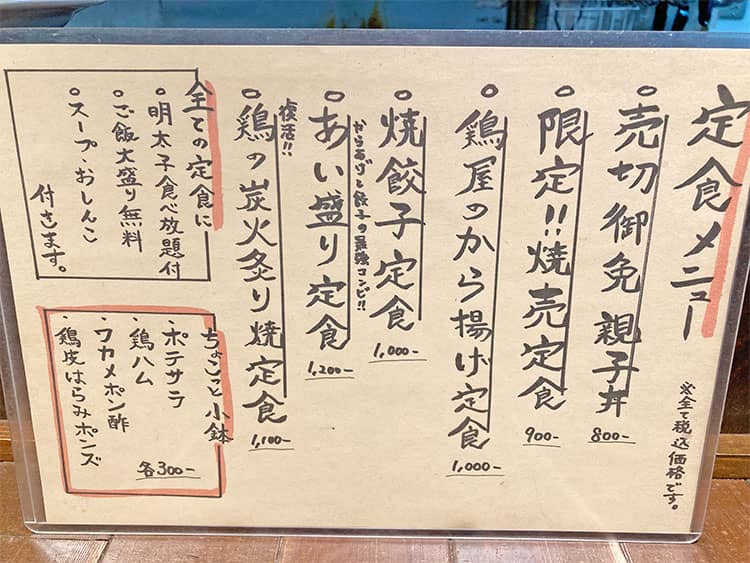 定食メニュー
※全て税込価格です。
○売切御免 親子丼
800-
○限定!!焼売定食
900-
○鶏屋のから揚げ定食
1,000-
○焼餃子定食
1,000-
からあげと餃子の最強コンビ!!
○あい盛り定食
1,200-
復活!!
○鶏の炭火炙り焼定食
1,100-
全ての定食に
○明太子食べ放題付
○ご飯大盛り無料
○スープ、おしんこ
付きます。
ちょこっと小鉢
・ポテサラ
・鶏ハム
・ワカメポン酢
・鶏皮はらみポンズ
各300-